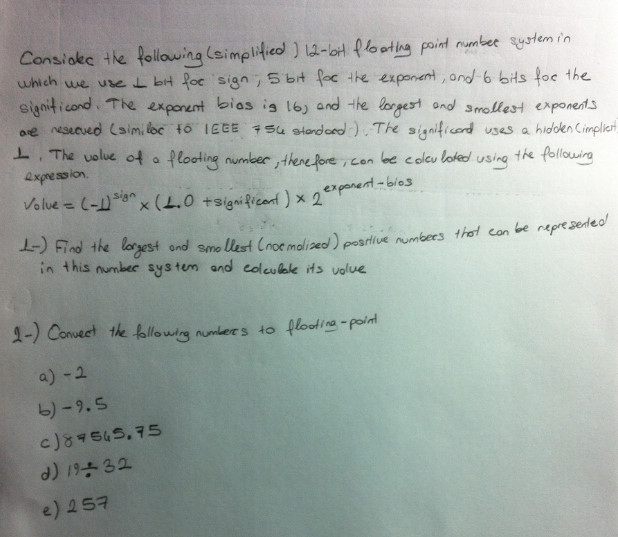 Consider the following (simplified) 12-bit floating point number system in
which we use 1 bit for sign, 5 bit for the exponent, and 6 bits for the
significand. The exponent bias is 16, and the largest and smallest exponents
are reserved (similar to IEEE 754 standard). The significand uses a hidden (implicit)
1. The value of a floating number, therefore, can be calculated using the following
expression.
Value = (-1)^sign x (1.0 + significant) x 2^exponent-bias
1-) Find the largest and smallest (normalized) positive numbers that can be represented
in this number system and calculate its value
2-) Convert the following numbers to floating-point
a) -2
b) -9.5
c) 87545.75
d) 19÷32
e) 257